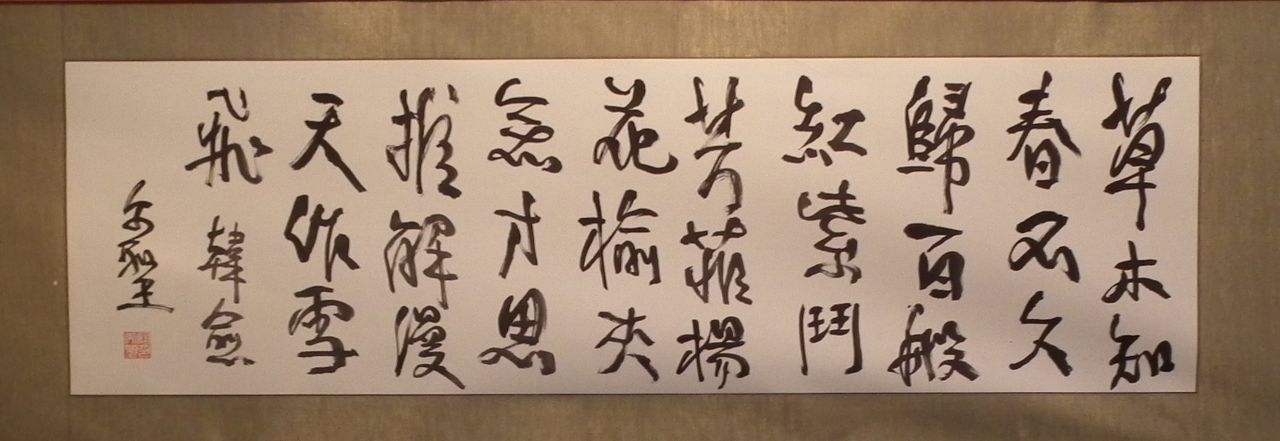 草木知
春不久
歸百般
紅紫鬥
芳菲楊
花榆夾
無才思
惟解漫
天作雪
飛 韓愈